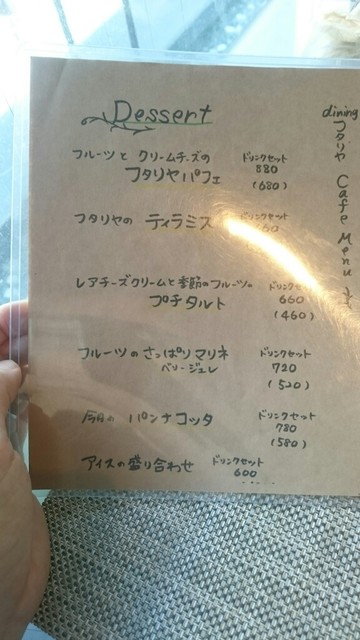 Dessert
フルーツと クリームチーズの ドリンクセット
フタリヤパフェ 880
(680)
フタリヤの ティラミス
レアチーズクリームと季節のフルーツの
プチタルト 660
(460)
フルーツの さっぱりマリネ ドリンクセット
ベリージュレ 720
(520)
今日の パンナコッタ ドリンクセット
780
(580)
アイスの盛り合わせ ドリンクセット
600
dining
フタリヤ
Cafe Menu